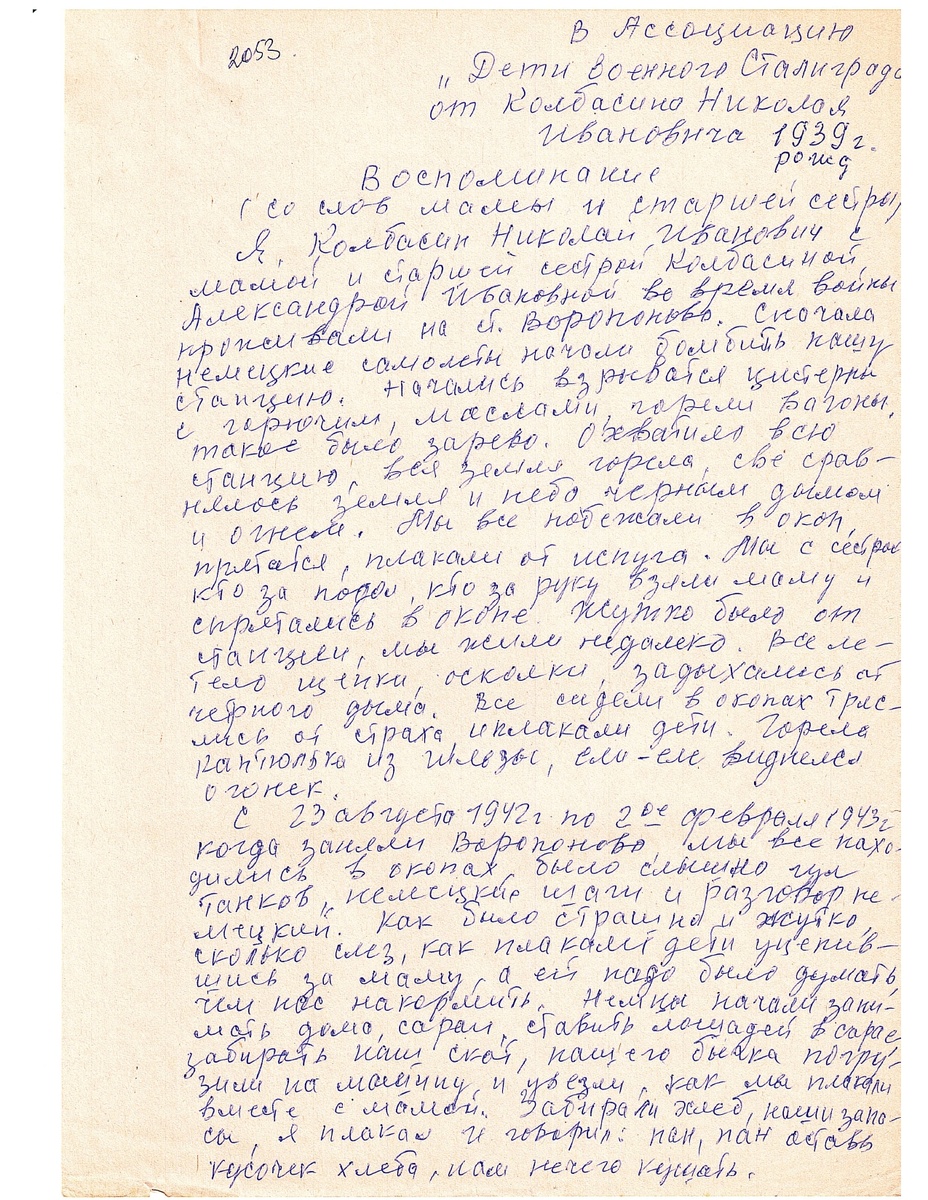 2053.
В Ассоциацию
„ Дети военного Сталинграда
от Колбасина Николая
Ивановича 1939г.
рожд
Воспоминание
(со слов мамы и старшей сестры)
Я, Колбасин Николай Иванович с
мамой и старшей сестрой Колбасиной
Александрой Ивановной во время войны
проживали на ст. Воропоново. Сначала
немецкие самолеты начали бомбить нашу
станцию. Начались взрыватся цистерны
с горючим, маслами, горели вагоны,
такое было зарево. Охватило всю
станцию, вся земля горела, све срав-
нялось земля и небо черным дымом
и огнем. Мы все побежали в окоп,
прятатся, плакали от испуга. Мы с сестрой
кто за подол, кто за руку взяли маму и
спрятались в окопе. Жутко было от
станции, мы жили недалеко. Все ле-
тело щепки, осколки, задыхались от
черного дыма. Все сидели в окопах тряс-
лись от страха и плакали дети. Горела
каптюлька из гильзы, ели-еле виднелся
огонек.
С 23 августа 1942г по 2ое февраля 1943г
когда заняли Воропоново мы все нахо-
дились в окопах, было слышно гул
танков, немецкие шаги и разговор не-
мецкий. Как было страшно и жутко,
сколько слез, как плакали дети уцепив-
шись за маму, а ей надо было думать,
чем нас накормить. Немцы начали зани-
мать дома, сараи, ставить лошадей в сарае
забирать наш скот, нашего бычка погру-
зили на машину и увезли, как мы плакали
вместе с мамой. Забирали хлеб, наши запа-
сы, я плакал и говорил: пан, пан оставь
кусочек хлеба, нам нечего кушать.